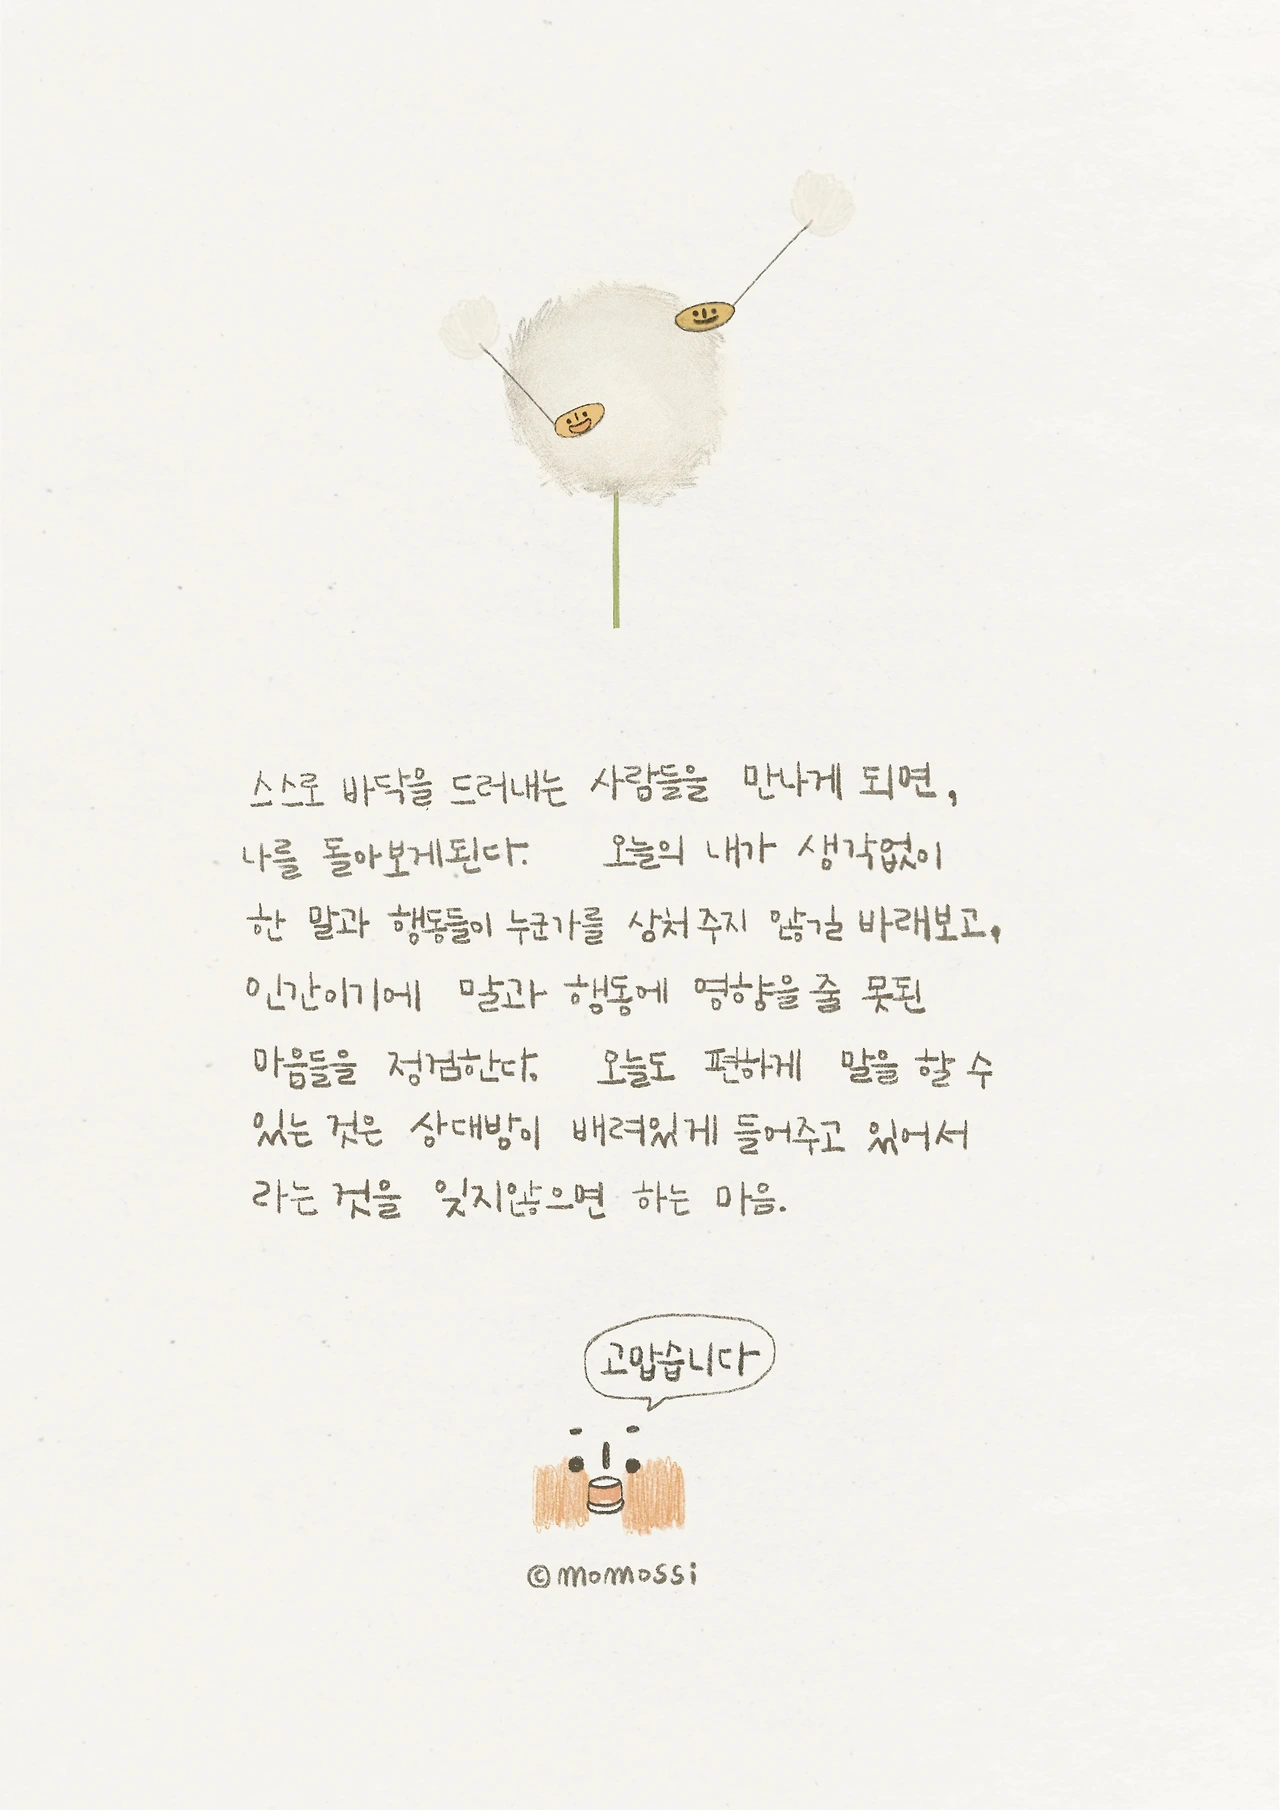 스스로 바닥을 드러내는 사람들을 만나게 되면,
나를 돌아보게된다. 오늘의 내가 생각없이
한 말과 행동들이 누군가를 상처주지 않길 바래보고,
인간이기에 말과 행동에 영향을 줄 못된
마음들을 정검한다. 오늘도 편하게 말을 할 수
있는 것은 상대방이 배려있게 들어주고 있어서
라는 것을 잊지않으면 하는 마음.
고맙습니다
©momossi